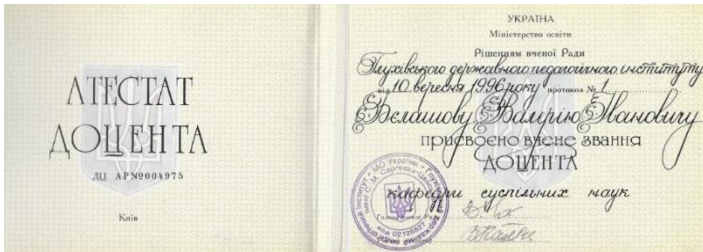 АТЕСТАТ
ДОЦЕНТА
ДЦ AP №004975
Київ
УКРАЇНА
Міністерство освіти
Рішенням вченої Ради
Глухівського державного педагогічного інституту
від 10 вересня 1996 року протокол № 1
Бєлашову Валерію Івановичу
присвоєно вчене звання
ДОЦЕНТА
кафедри суспільних наук
Голова вченої Ради